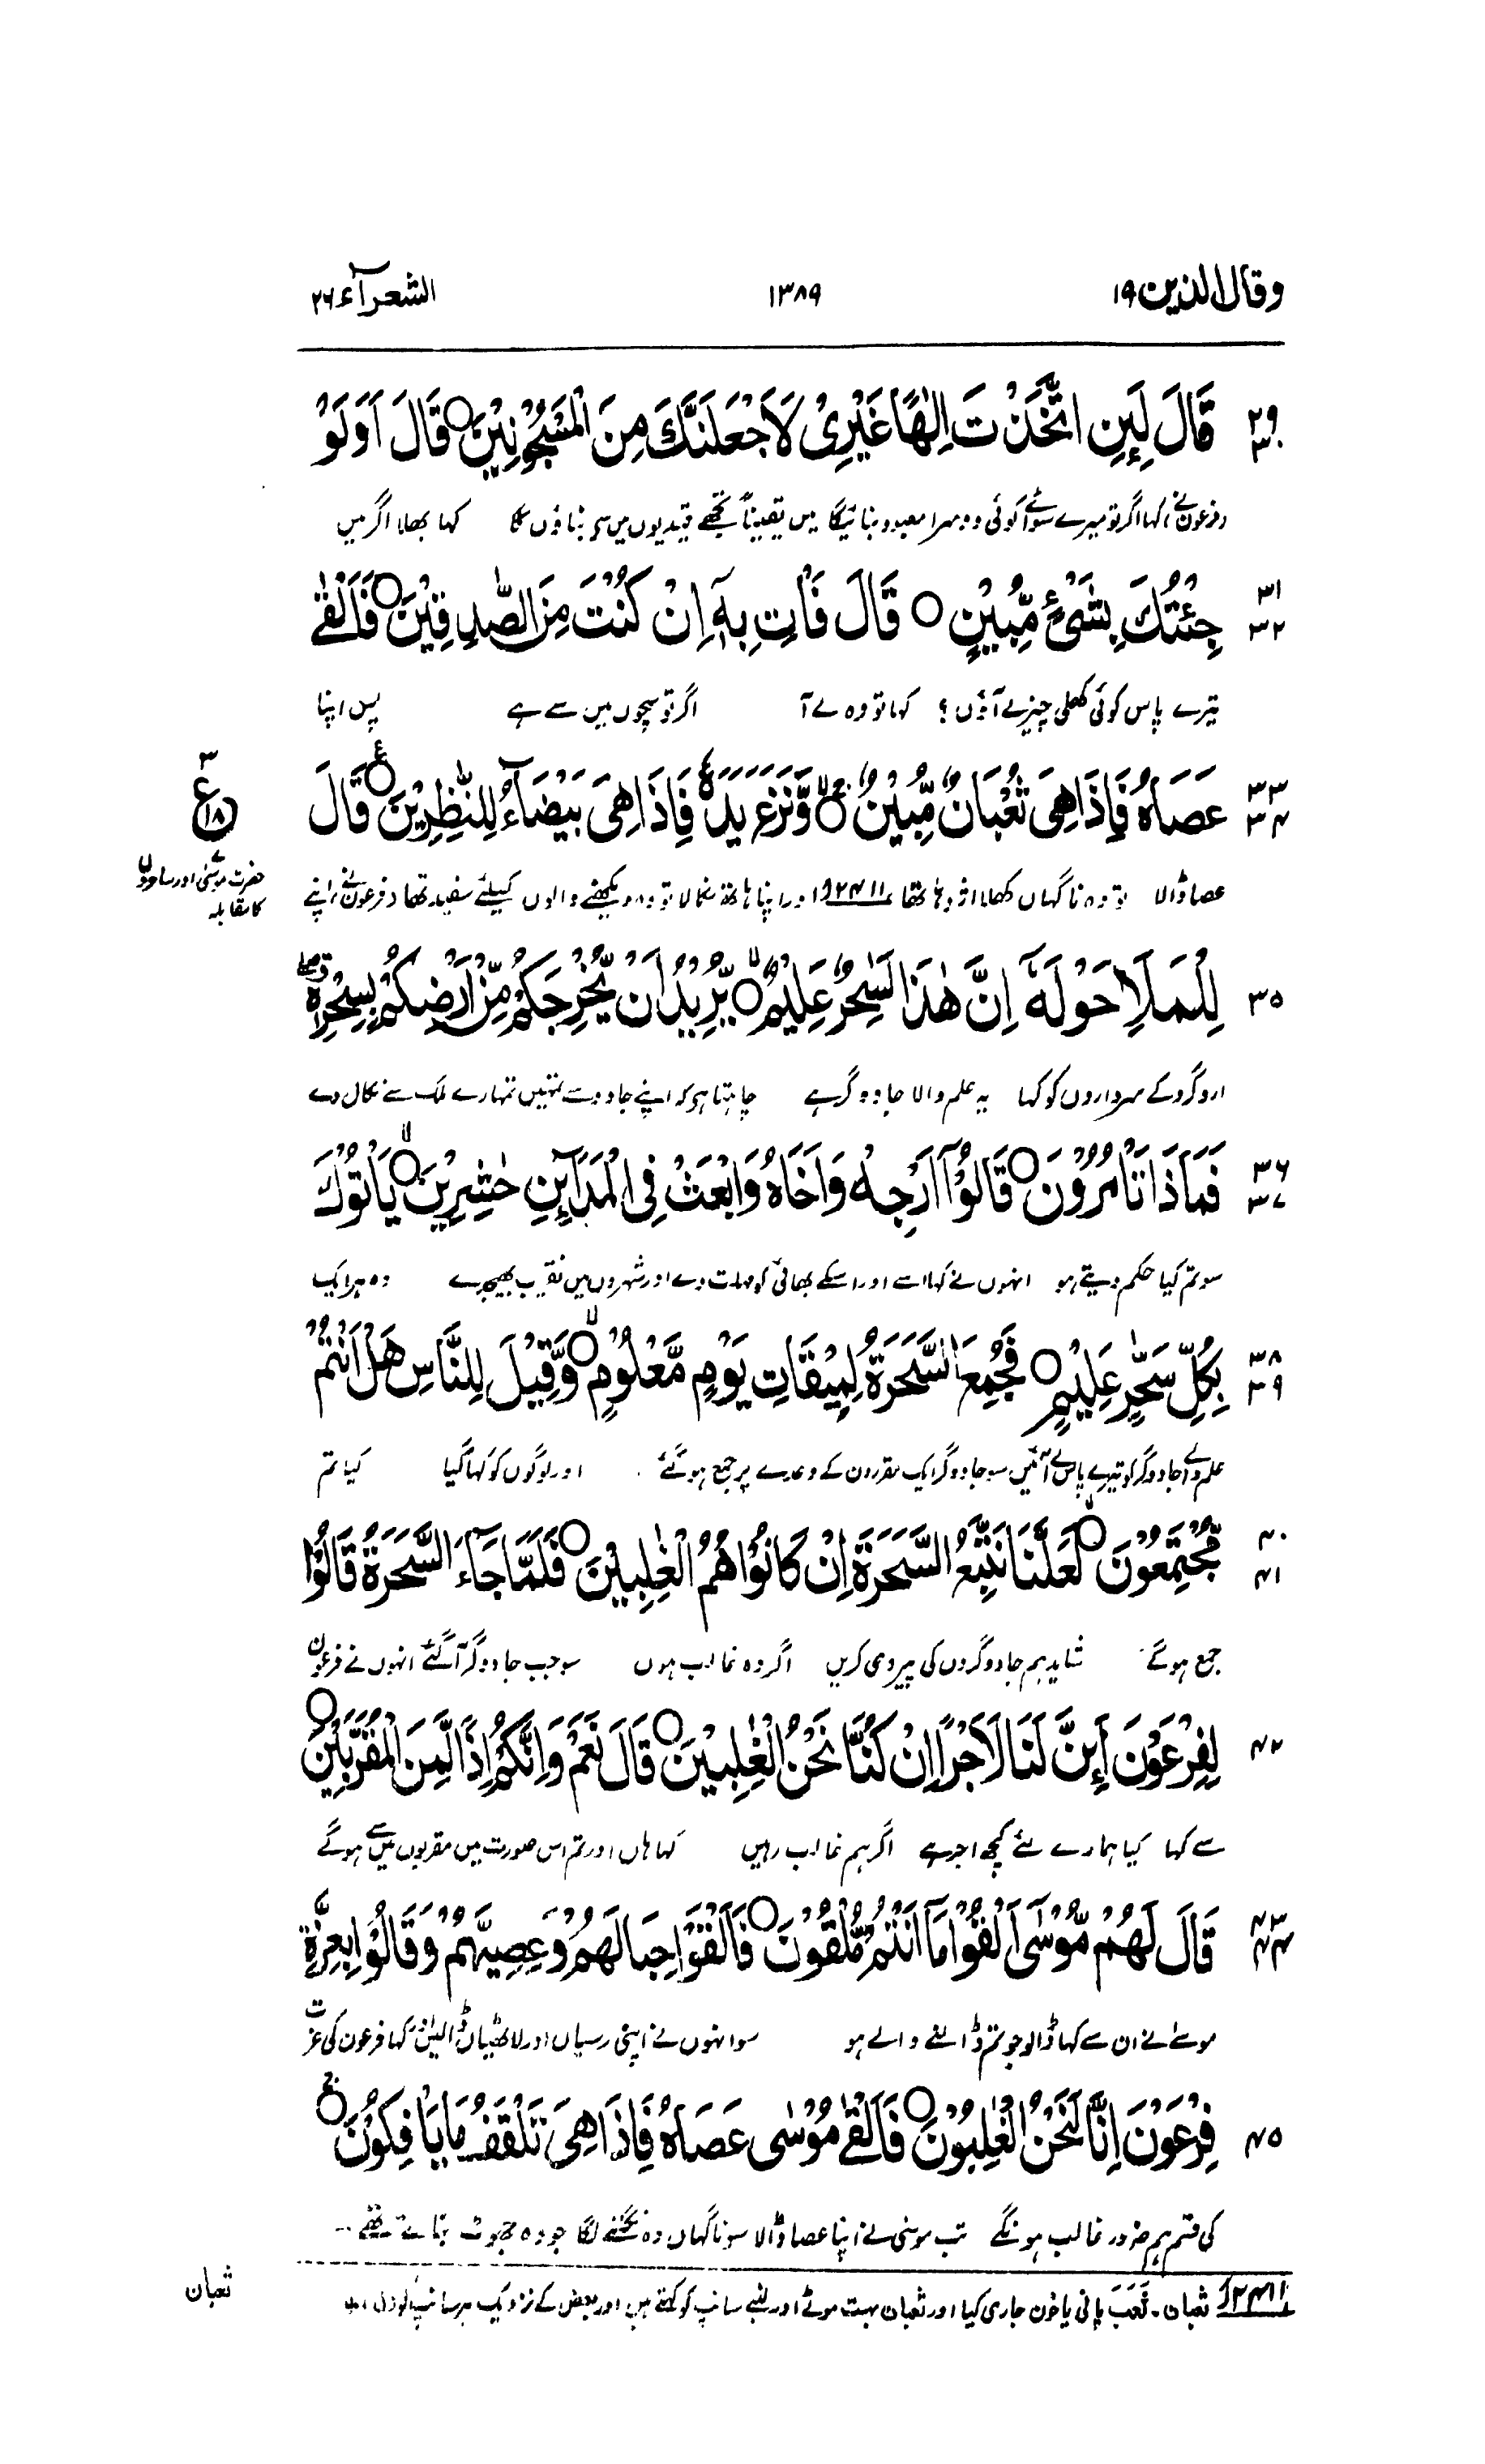 وقال الذین ۱۹
۱۳۸۹
الشعرآء ۲۶
۲۹
۳۰
قَالَ لَئِنِ اتَّخَذْتَ اِلٰهًا غَيْرِىْ لَاَجْعَلَنَّكَ مِنَ الْمَسْجُوْنِيْنَ ○ قَالَ اَوَلَوْ
(فرعون نے) کہا اگر تو میرے سوائے کوئی دوسرا معبود بنائیگا میں یقیناً تجھے قیدیوں میں سے بناؤں گا کہا بھلا اگر میں
۳۱
۳۲
جِئْتُكَ بِشَىْءٍ مُّبِيْنٍ ○ قَالَ فَاْتِ بِهٖۤ اِنْ كُنْتَ مِنَ الصّٰدِقِيْنَ ○ فَاَلْقٰى
تیرے پاس کوئی کھلی چیز لے آؤں؟ کہا تو وہ لے آ اگر تو سچوں میں سے ہے پس اپنا
۳۳
۳۴
عَصَاهُ فَاِذَا هِىَ ثُعْبَانٌ مُّبِيْنٌ ○ وَّنَزَعَ يَدَهٗ فَاِذَا هِىَ بَيْضَآءُ لِلنّٰظِرِيْنَ ○ قَالَ
۳
ع
۱۸
عصا ڈالا تو وہ ناگہاں کھلا اژدہا تھا ۲۴۱۱ اور اپنا ہاتھ نکالا تو وہ دیکھنے والوں کیلئے سفید تھا (فرعون نے) اپنے
حضرت موسٰی اور ساحروں
کا مقابلہ
۳۵
لِلْمَلَاِ حَوْلَهٗۤ اِنَّ هٰذَا لَسٰحِرٌ عَلِيْمٌ ○ يُّرِيْدُ اَنْ يُّخْرِجَكُمْ مِّنْ اَرْضِكُمْ بِسِحْرِهٖ
اردگرد کے سرداروں کو کہا یہ علم والا جادوگر ہے چاہتا ہے کہ اپنے جادو سے تمہیں تمہارے ملک سے نکال دے
۳۶
۳۷
فَمَاذَا تَاْمُرُوْنَ ○ قَالُوْۤا اَرْجِهْ وَاَخَاهُ وَابْعَثْ فِى الْمَدَآئِنِ حٰشِرِيْنَ ○ يَاْتُوْكَ
سو تم کیا حکم دیتے ہو انہوں نے کہا اسے اور اسکے بھائی کو مہلت دے اور شہروں میں نقیب بھیجدے وہ ہر ایک
۳۸
۳۹
بِكُلِّ سَحَّارٍ عَلِيْمٍ ○ فَجُمِعَ السَّحَرَةُ لِمِيْقَاتِ يَوْمٍ مَّعْلُوْمٍ ○ وَّقِيْلَ لِلنَّاسِ هَلْ اَنْتُمْ
علم والے جادوگر کو تیرے پاس لے آئیں سو جادوگر ایک مقرر دن کے وعدے پر جمع ہوگئے اور لوگوں کو کہا گیا کیا تم
۴۰
۴۱
مُّجْتَمِعُوْنَ ○ لَعَلَّنَا نَتَّبِعُ السَّحَرَةَ اِنْ كَانُوْا هُمُ الْغٰلِبِيْنَ ○ فَلَمَّا جَآءَ السَّحَرَةُ قَالُوْا
جمع ہوگے شاید ہم جادوگروں کی پیروی کریں اگر وہ غالب ہوں سو جب جادوگر آگئے انہوں نے فرعون
۴۲
لِفِرْعَوْنَ أَئِنَّ لَنَا لَاَجْرًا اِنْ كُنَّا نَحْنُ الْغٰلِبِيْنَ ○ قَالَ نَعَمْ وَاِنَّكُمْ اِذًا لَّمِنَ الْمُقَرَّبِيْنَ ○
سے کہا کیا ہمارے لئے کچھ اجر ہے اگر ہم غالب رہیں کہا ہاں اور تم اس صورت میں مقربوں میں سے ہوگے
۴۳
۴۴
قَالَ لَهُمْ مُّوْسٰۤى اَلْقُوْا مَاۤ اَنْتُمْ مُّلْقُوْنَ ○ فَاَلْقَوْا حِبَالَهُمْ وَعِصِيَّهُمْ وَقَالُوْا بِعِزَّةِ
موسٰے نے ان سے کہا ڈالو جو تم ڈالنے والے ہو سو انہوں نے اپنی رسیاں اور لاٹھیاں ڈالیں اور کہا فرعون کی عزت
۴۵
فِرْعَوْنَ اِنَّا لَنَحْنُ الْغٰلِبُوْنَ ○ فَاَلْقٰى مُوْسٰى عَصَاهُ فَاِذَا هِىَ تَلْقَفُ مَا يَاْفِكُوْنَ ○
کی قسم ہم ضرور غالب ہونگے تب موسٰی نے اپنا عصا ڈالا سو ناگہاں وہ نگلنے لگا جو وہ جھوٹ بناتے تھے
۲۴۱۱ ثعبان۔ ثَعَبَ پانی یا خون جاری کیا اور ثعبان بہت موٹے اور لنبے سانپ کو کہتے ہیں اور بعض کے نزدیک ہر سانپ کو
ثعبان